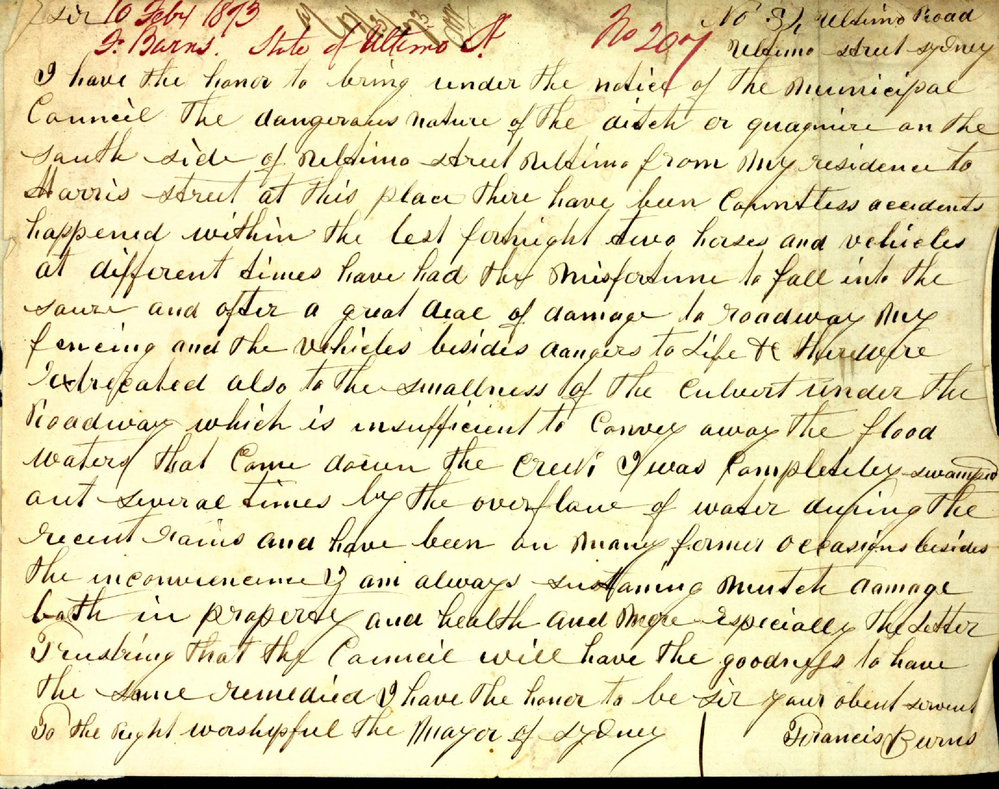 Sir 10 Feby 1873 No 31, Ultimo Road
F. Barns. State of Ultimo St. No 207 Ultimo Street Sydney
I have the honor to bring under the notice of the Municipal
Council the dangerous nature of the ditch or quagmire on the
south side of Ultimo Street Ultimo from my residence to
Harris Street at this place there have been Countless accidents
happened within the last fortnight two horses and vehicles
at different times have had the Misfortune to fall into the
same and after a great deal of damage to roadway My
fencing and the vehicles besides dangers to Life &c there were
Extricated also to the smallness of the Culvert under the
Roadway which is insufficient to Convey away the flood
waters that Come down the I was Completeley swamped
out several times by the overflow of water during the
recent rains and have been on Many former Occasions besides
the inconvienence I am always sustaning Mutch damage
both in property and health and More especially the Latter
Trusting that the Council will have the goodness to have
the same remedied I have the honor to be Sir your obent servent
To the Right worshipful the Mayor of Sydney Francis Burns